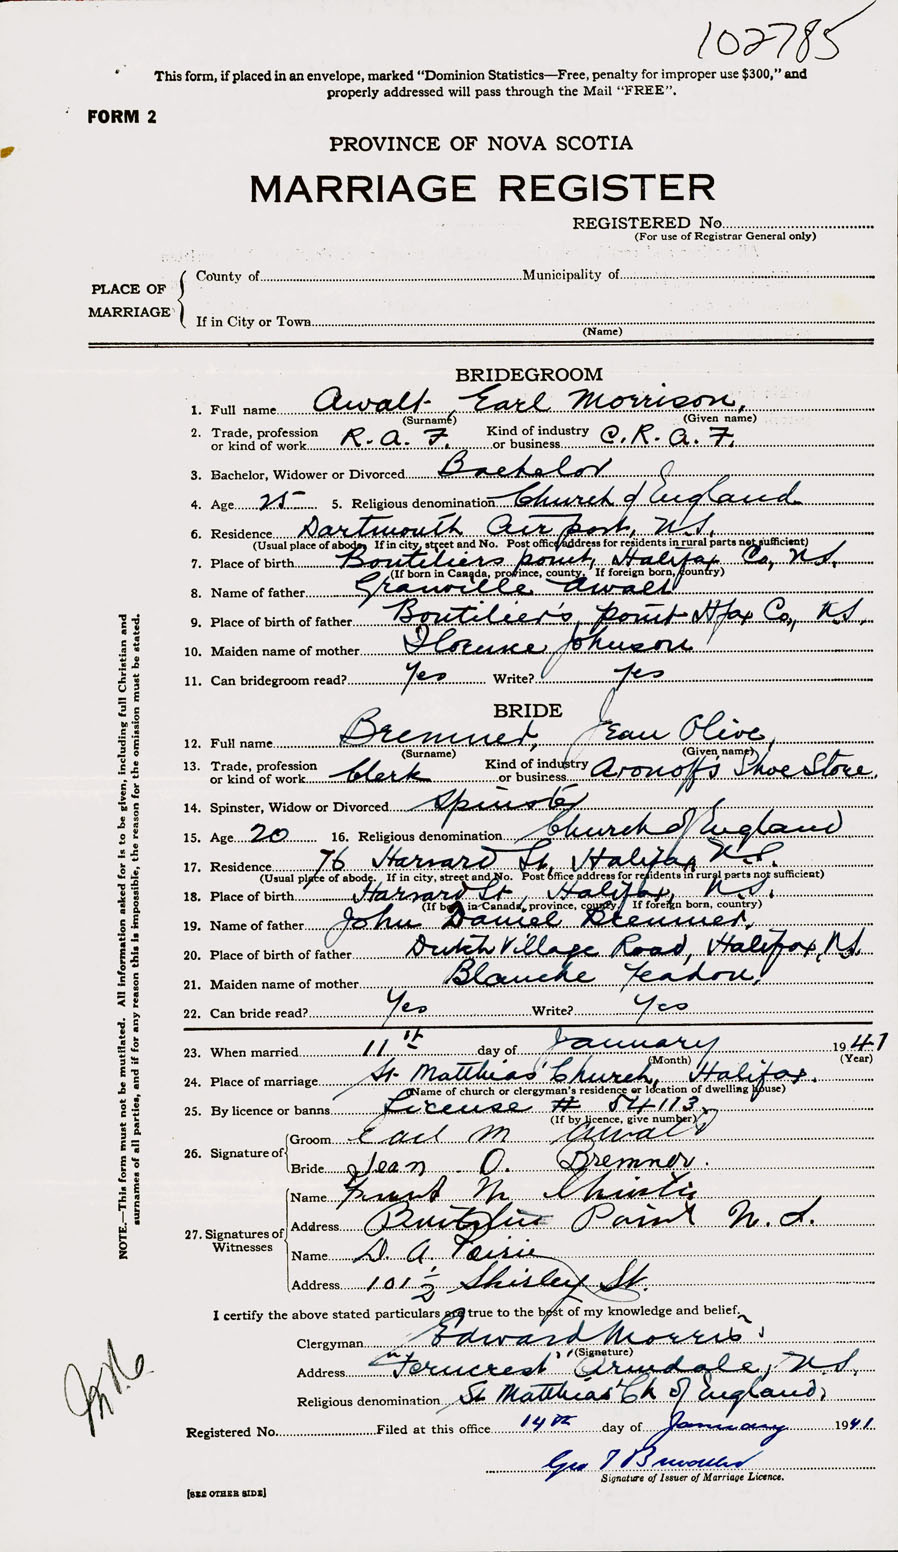 102785
This form, if placed in an envelope, marked "Dominion Statistics—Free, penalty for improper use $300," and
properly addressed will pass through the Mail "FREE".
FORM 2
PROVINCE OF NOVA SCOTIA
MARRIAGE REGISTER
REGISTERED No.
(For use of Registrar General only)
PLACE OF MARRIAGE
County of Municipality of
If in City or Town
(Name)
BRIDEGROOM
1. Full name Awalt, Earl Morrison,
(Surname) (Given name)
2. Trade, profession or kind of work R.A.F. Kind of industry or business C.R.A.F.
3. Bachelor, Widower or Divorced Bachelor
4. Age 25 5. Religious denomination Church of England
6. Residence Dartmouth Air port, N.S.
(Usual place of abode. If in city, street and No. Post office address for residents in rural parts not sufficient)
7. Place of birth Boutiliers point, Halifax Co, N.S.
(If born in Canada, province, county. If foreign born, country)
8. Name of father Granville Awalt
9. Place of birth of father Boutilier's point Hfax Co., N.S.
10. Maiden name of mother Florence Johnson
11. Can bridegroom read? Yes Write? Yes
BRIDE
12. Full name Bremner, Jean Olive,
(Surname) (Given name)
13. Trade, profession or kind of work Clerk Kind of industry or business Aronoff's Shoe Store.
14. Spinster, Widow or Divorced Spinster
15. Age 20 16. Religious denomination Church of England
17. Residence 76 Harvard St, Halifax, N.S.
(Usual place of abode. If in city, street and No. Post office address for residents in rural parts not sufficient)
18. Place of birth Harvard St, Halifax, N.S.
(If born in Canada, province, county. If foreign born, country)
19. Name of father John Daniel Bremner.
20. Place of birth of father Dutch Village Road, Halifax, N.S.
21. Maiden name of mother Blanche Yeadon.
22. Can bride read? Yes Write? Yes
23. When married 11th day of January 1941
(Month) (Year)
24. Place of marriage St. Matthias' Church, Halifax.
(Name of church or clergyman's residence or location of dwelling house)
25. By licence or banns License # 84113.
(If by licence, give number)
26. Signature of Groom Earl M Awalt
Bride Jean O. Bremner.
27. Signatures of Witnesses Name M Christie
Address Point N.S.
Name D A
Address 101½ Shirley St.
I certify the above stated particulars are true to the best of my knowledge and belief.
Clergyman Edward Morris
(Signature)
Address "Ferncrest" Armdale, N.S.
Religious denomination St Matthias' Ch of England,
Registered No. Filed at this office 14th day of January 1941
Geo
Signature of Issuer of Marriage Licence.
[SEE OTHER SIDE]
NOTE.—This form must not be mutilated. All information asked for is to be given, including full Christian and
surnames of all parties, and if for any reason this is impossible, the reason for the omission must be stated.